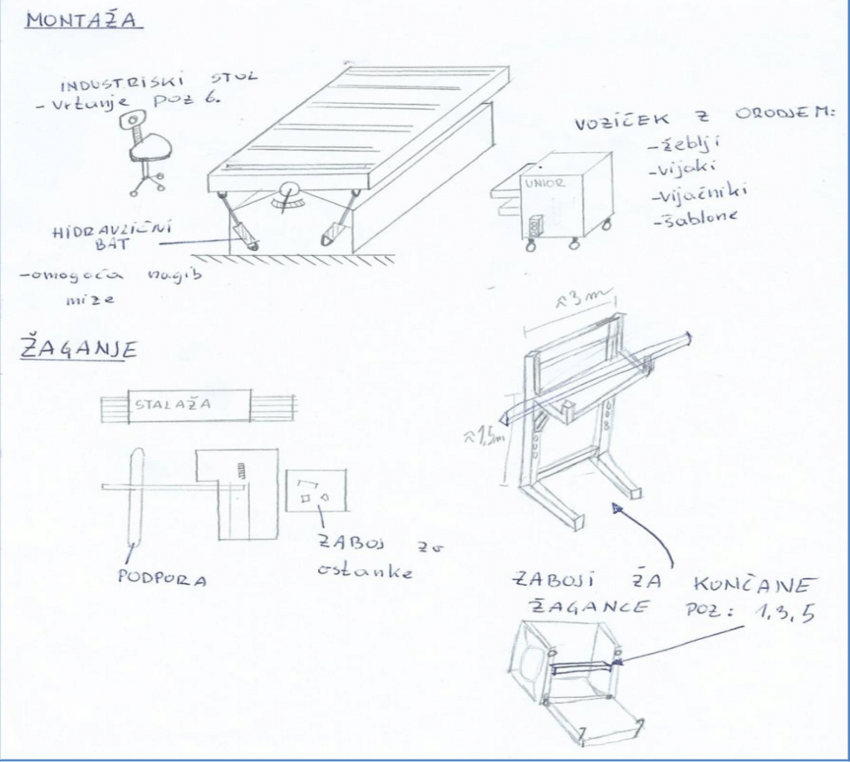 MONTAŽA
INDUSTRISKI STOL
- Vrtanje poz 6.
VOZIČEK Z ORODJEM:
-žeblji
-vijaki
-vijačniki
-šablone
UNIOR
HIDRAVLIČNI
BAT
-omogoča nagib
mize
ŽAGANJE
≈3m
≈1,5m
STALAŽA
PODPORA
ZABOJ za
ostanke
ZABOJI ŽA KONČANE
ŽAGANCE POZ: 1,3,5